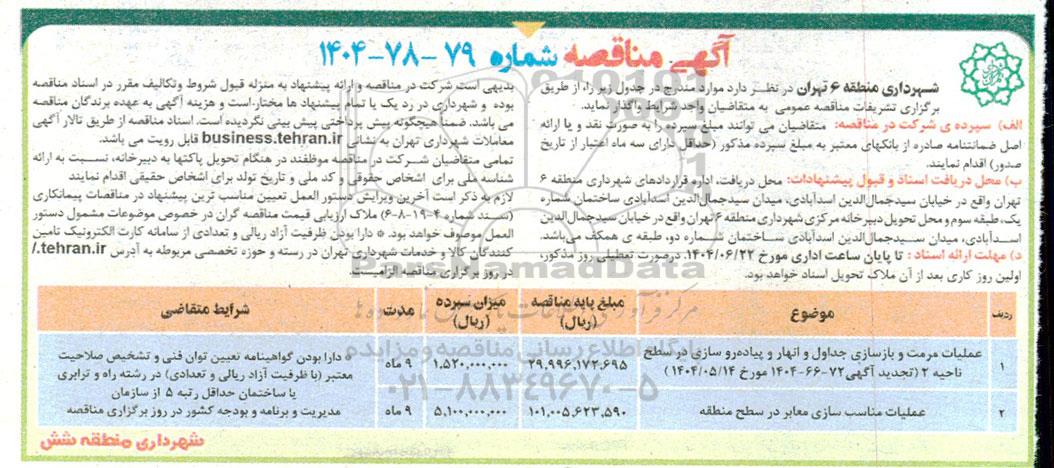 آگهی مناقصه شماره ۷۹-۷۸-۱۴۰۴
شهرداری منطقه ۶ تهران در نظر دارد موارد مندرج در جدول زیر را، از طریق
برگزاری تشریفات مناقصه عمومی به متقاضیان واجد شرایط واگذار نماید.
الف) سپرده ی شرکت در مناقصه: متقاضیان می توانند مبلغ سپرده را به صورت نقد و یا ارائه
اصل ضمانتنامه صادره از بانکهای معتبر به مبلغ سپرده مذکور (حداقل دارای سه ماه اعتبار از تاریخ
صدور) اقدام نمایند.
ب) محل دریافت اسناد و قبول پیشنهادات: محل دریافت، اداره قراردادهای شهرداری منطقه ۶
تهران واقع در خیابان سیدجمال‌الدین اسدآبادی، میدان سیدجمال‌الدین اسدآبادی ساختمان شماره
یک، طبقه سوم و محل تحویل دبیرخانه مرکزی شهرداری منطقه ۶ تهران واقع در خیابان سیدجمال‌الدین
اسدآبادی، میدان سیدجمال‌الدین اسدآبادی ساختمان شماره دو، طبقه ی همکف می‌باشد.
د) مهلت ارائه اسناد: تا پایان ساعت اداری مورخ ۱۴۰۴/۰۶/۲۲. درصورت تعطیلی روز مذکور،
اولین روز کاری بعد از آن ملاک تحویل اسناد خواهد بود.
بدیهی است شرکت در مناقصه و ارائه پیشنهاد به منزله قبول شروط وتکالیف مقرر در اسناد مناقصه
بوده و شهرداری در رد یک یا تمام پیشنهاد ها مختار است و هزینه آگهی به عهده برندگان مناقصه
می باشد. ضمناً هیچگونه پیش پرداختی پیش بینی نگردیده است. اسناد مناقصه از طریق تالار آگهی
معاملات شهرداری تهران به نشانی business.tehran.ir قابل رویت می باشد.
تمامی متقاضیان شرکت در مناقصه موظفند در هنگام تحویل پاکتها به دبیرخانه، نسبت به ارائه
شناسه ملی برای اشخاص حقوقی و کد ملی و تاریخ تولد برای اشخاص حقیقی اقدام نمایند
لازم به ذکر است آخرین ویرایش دستور العمل تعیین مناسب ترین پیشنهاد در مناقصات پیمانکاری
(سند شماره ۴-۱۹-۸-۶) ملاک ارزیابی قیمت مناقصه گران در خصوص موضوعات مشمول دستور
العمل موصوف خواهد بود. * دارا بودن ظرفیت آزاد ریالی و تعدادی از سامانه کارت الکترونیک تامین
کنندگان کالا و خدمات شهرداری تهران در رسته و حوزه تخصصی مربوطه به آدرس tehran.ir/.
در روز برگزاری مناقصه الزامیست.
ردیف موضوع مبلغ پایه مناقصه (ریال) میزان سپرده (ریال) مدت شرایط متقاضی
۱ عملیات مرمت و بازسازی جداول و انهار و پیاده‌رو سازی در سطح
ناحیه ۲ (تجدید آگهی ۷۲-۶۶-۱۴۰۴ مورخ ۱۴۰۴/۰۵/۱۴) ۲۹،۹۹۶،۱۷۲،۶۹۵ ۱،۵۲۰،۰۰۰،۰۰۰ ۹ ماه
۲ عملیات مناسب سازی معابر در سطح منطقه ۱۰۱،۰۰۵،۶۲۳،۵۹۰ ۵،۱۰۰،۰۰۰،۰۰۰ ۹ ماه
* دارا بودن گواهینامه تعیین توان فنی و تشخیص صلاحیت
معتبر (با ظرفیت آزاد ریالی و تعدادی) در رشته راه و ترابری
یا ساختمان حداقل رتبه ۵ از سازمان
مدیریت و برنامه و بودجه کشور در روز برگزاری مناقصه
شهرداری منطقه شش
ParsNamadData
پایگاه اطلاع رسانی مناقصه و مزایده
۰۲۱-۸۸۳۴۹۶۷۰-۵